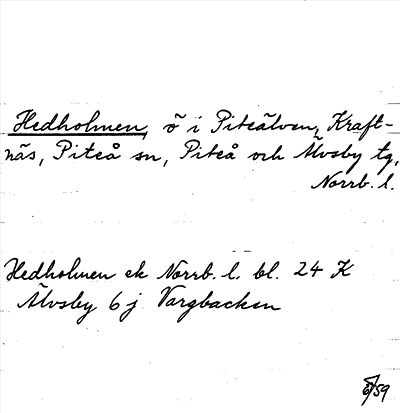 Hedholmen, ö i Piteälven, Kraft-
näs, Piteå sn, Piteå och Älvsby tg,
Norrb. l.
Hedholmen ek Norrb. l. bl. 24 K
Älvsby 6 j Vargbacken
/59